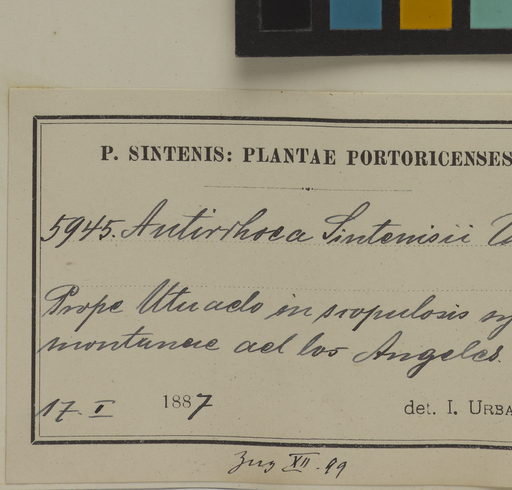 P. SINTENIS: PLANTAE PORTORICENSES
5945. Antirrhoea Sintenisii U
Prope Utuado in scopulosis sy
montanae ad los Angeles.
17. I 1887 det. I. URBA
XII.99